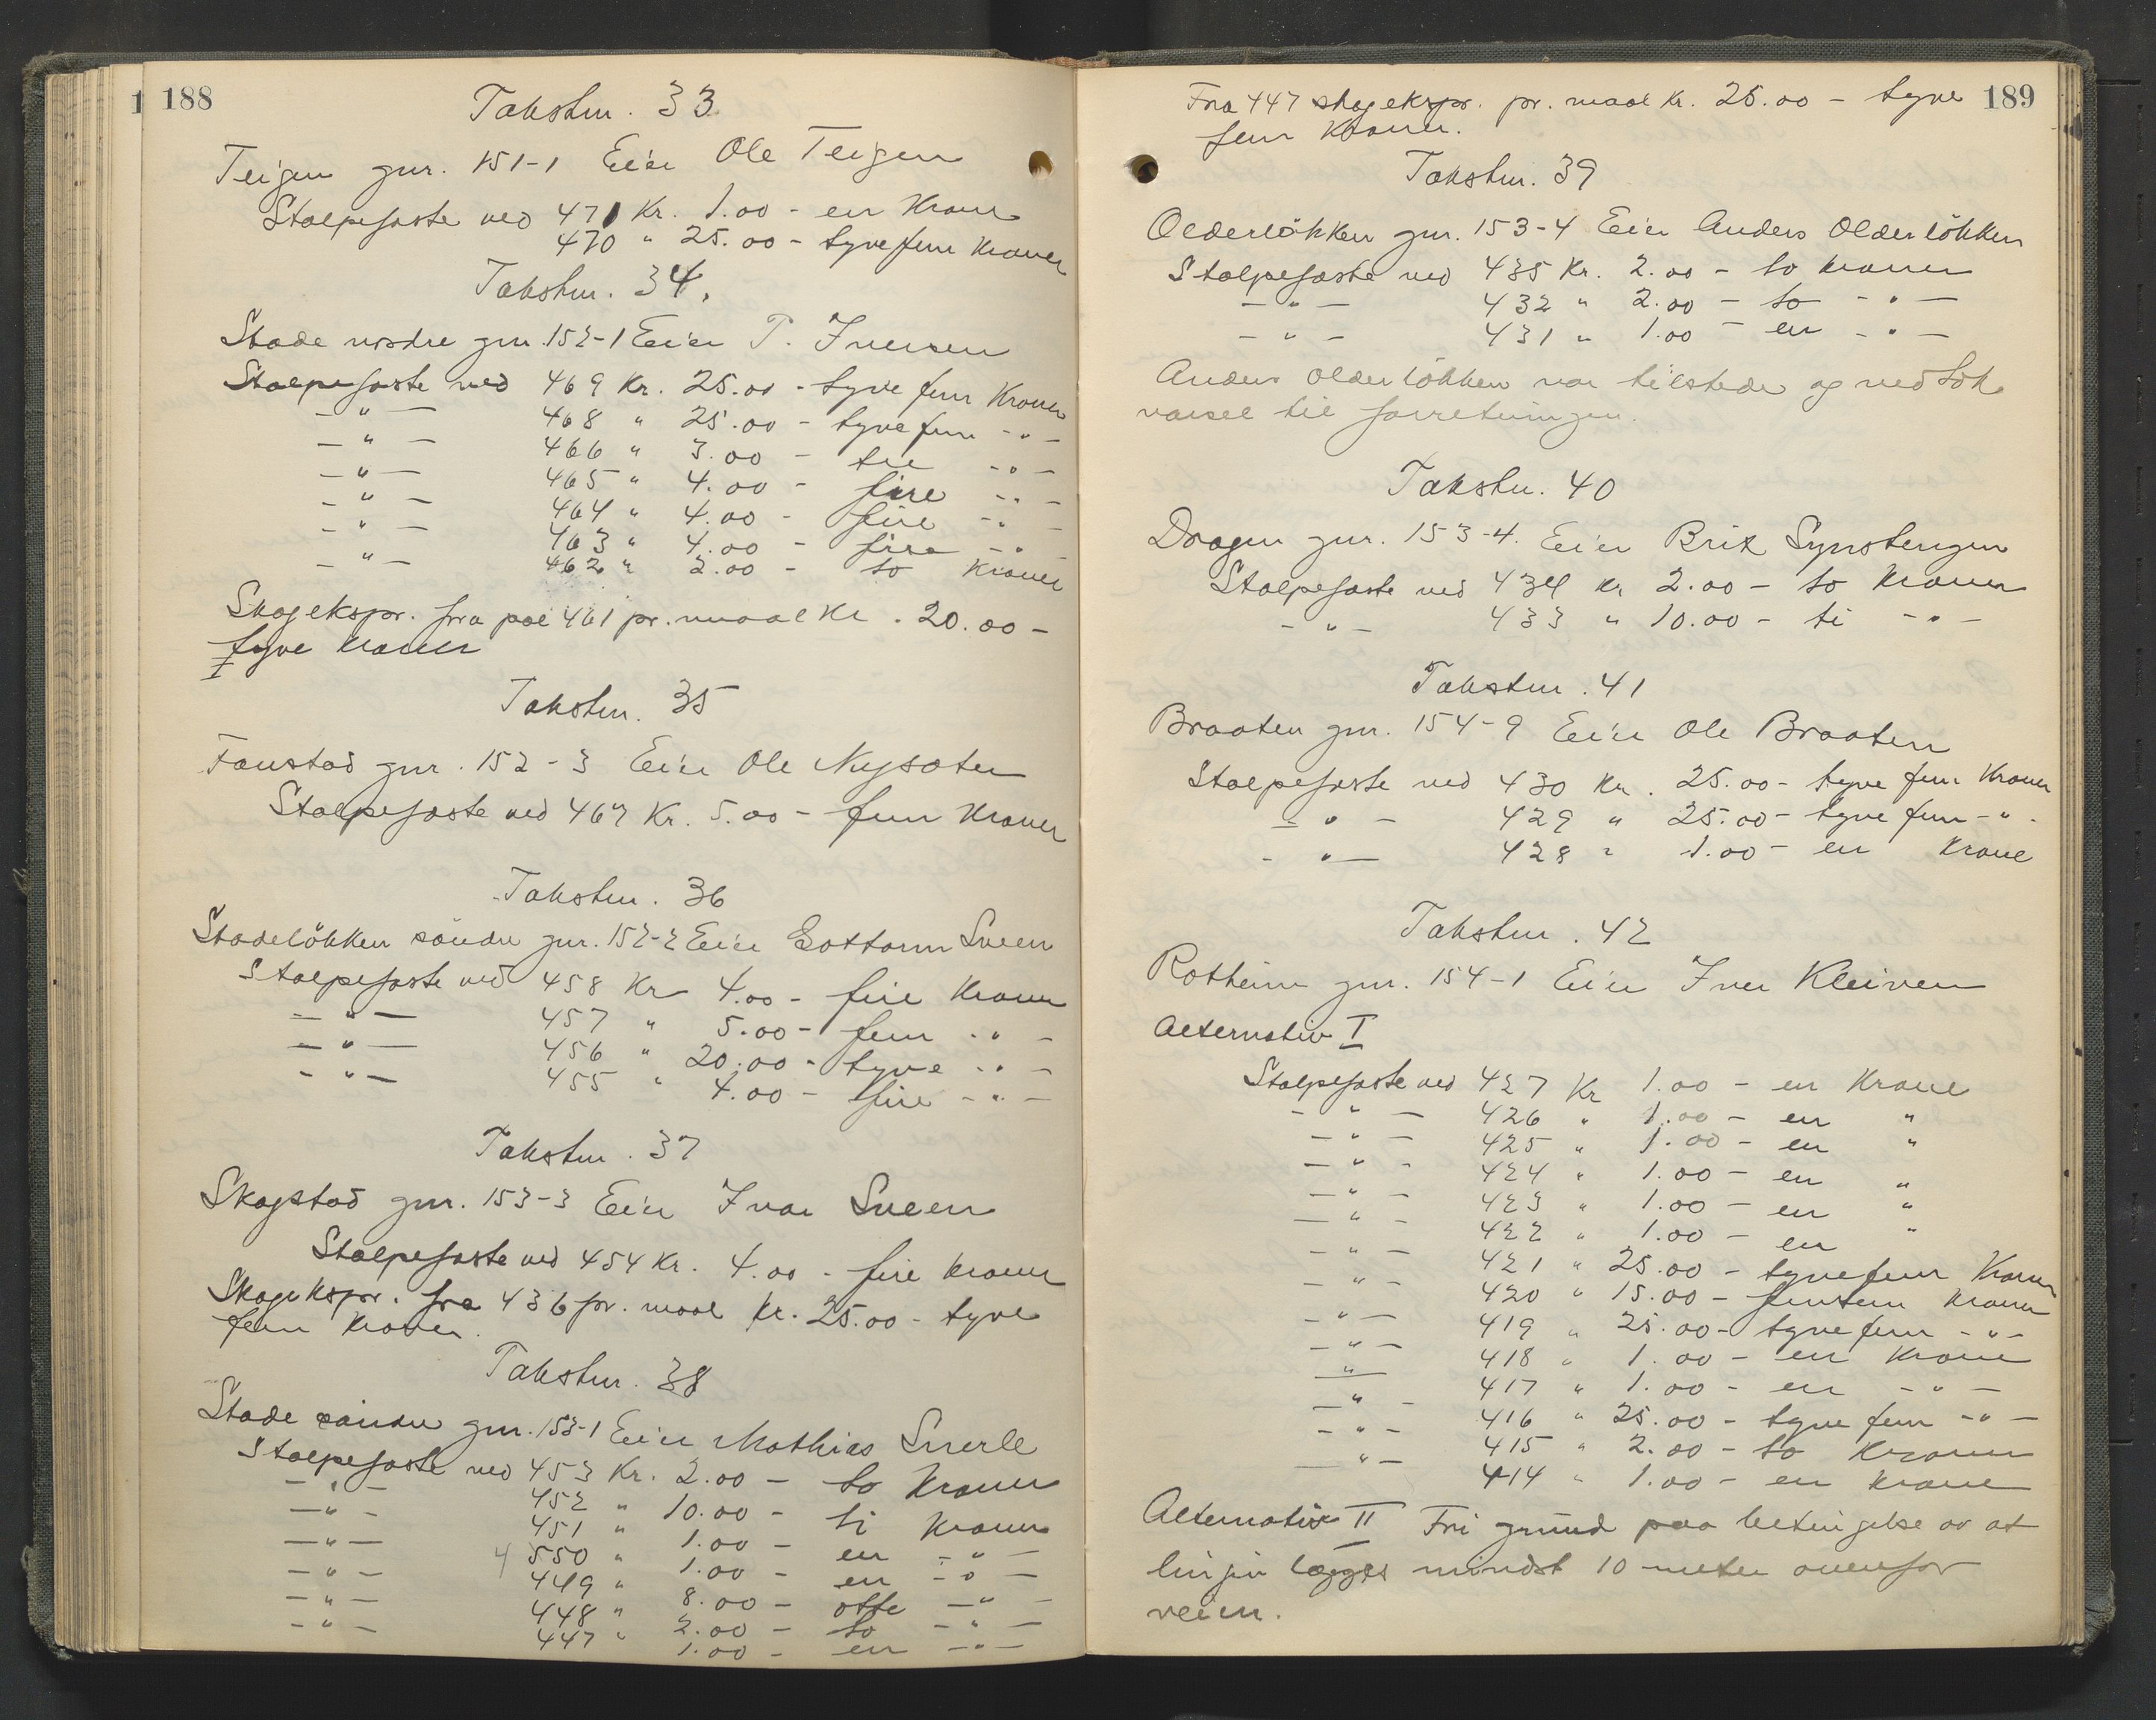 188
Takstnr. 33
Teigen gnr. 151-1 Eier Ole Teigen
Stolpefæste ved 471 Kr. 1.00 - en Krone
470 " 25.00 - tyvefem Kroner
Takstnr. 34.
Stade nordre gnr. 152-1 Eier P. Iversen
Stolpefæste ved 469 Kr. 25.00 - tyve fem Kroner
- " - 468 " 25.00 - tyve fem - " -
- " - 466 " 3.00 - tre - " -
- " - 465 " 4.00 - fire - " -
- " - 464 " 4.00 - fire - " -
- " - 463 " 4.00 - fire - " -
- " - 462 " 2.00 - to Kroner
Skogekspr. fra pæl 461 pr. maal Kr. 20.00 -
tyve Kroner
Takstnr. 35
Faustad gnr. 152-3 Eier Ole Nysæter
Stolpefæste ved 467 Kr. 5.00 - fem Kroner
Takstnr. 36
Stadeløkken søndre gnr. 152-2 Eier Gottorm Sveen
Stolpefæste ved 458 Kr 4.00 - fire Kroner
- " - 457 " 5.00 - fem - " -
- " - 456 " 20.00 - tyve - " -
- " - 455 " 4.00 - fire - " -
Takstnr. 37
Skogstad gnr. 153-3 Eier Ivar Sveen
Stolpefæste ved 454 Kr. 4.00 - fire Kroner
Skogekspr. fra 436 pr. maal kr. 25.00 - tyve
fem Kroner.
Takstnr. 38
Stade søndre gnr. 153-1 Eier Mathias Snerle
Stolpefæste ved 453 Kr. 2.00 - to Kroner
- " - 452 " 10.00 - ti Kroner
- " - 451 " 1.00 - en - " -
- " - 4 550 " 1.00 - en - " -
- " - 449 " 8.00 - otte - " -
- " - 448 " 2.00 - to - " -
- " - 447 " 1.00 - en - " -
189
Fra 447 skogekspr. pr. maal kr. 25.00 - tyve
fem Kroner.
Takstnr. 39
Olderløkken gnr. 153-4 Eier Anders Olderløkken
Stolpefæste ved 435 Kr. 2.00 - to kroner
- " - 432 " 2.00 - to - " -
- " - 431 " 1.00 - en - " -
Anders Olderløkken var tilstede og vedtok
varsel til forretningen.
Takstnr. 40
Dragen gnr. 153-4. Eier Brit Synstengen
Stolpefæste ved 434 kr 2.00 - to Kroner
- " - 433 " 10.00 - ti - " -
Takstnr. 41
Braaten gnr. 154-9 Eier Ole Braaten
Stolpefæste ved 430 Kr. 25.00 - tyve fem Kroner
- " - 429 " 25.00 - tyve fem - " -
- " - 428 " 1.00 - en Krone
Takstnr. 42
Rotheim gnr. 154-1 Eier Iver Kleiven
Alternativ I
Stolpefæste ved 427 Kr 1.00 - en Krone
- " - 426 " 1.00 - en "
- " - 425 " 1.00 - en "
- " - 424 " 1.00 - en "
- " - 423 " 1.00 - en "
- " - 422 " 1.00 - en "
- " - 421 " 25.00 - tyvefem Kroner
- " - 420 " 15.00 - femten Kroner
- " - 419 " 25.00 - tyve fem - " -
- " - 418 " 1.00 - en Krone
- " - 417 " 1.00 - en - " -
- " - 416 " 25.00 - tyve fem - " -
- " - 415 " 2.00 - to Kroner
- " - 414 " 1.00 - en krone
Alternativ II Fri grund paa betingelse av at
linjen lægges mindst 10 meter ovenfor
veien.